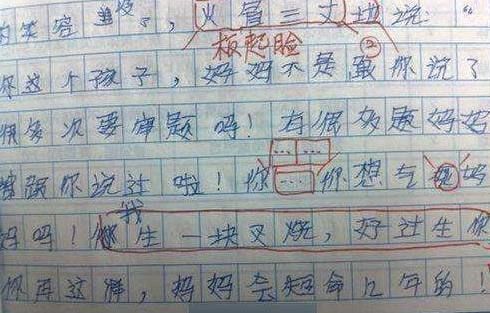 的笑容 没了，火冒三丈地说：“
板起脸 ②
你这个孩子，妈妈不是跟你说了
很多次要审题吗！有很多题妈妈
都跟你说过啦！你……你想气死妈
妈吗！我生一块叉烧，好过生你
你再这样，妈妈会短命几年的！